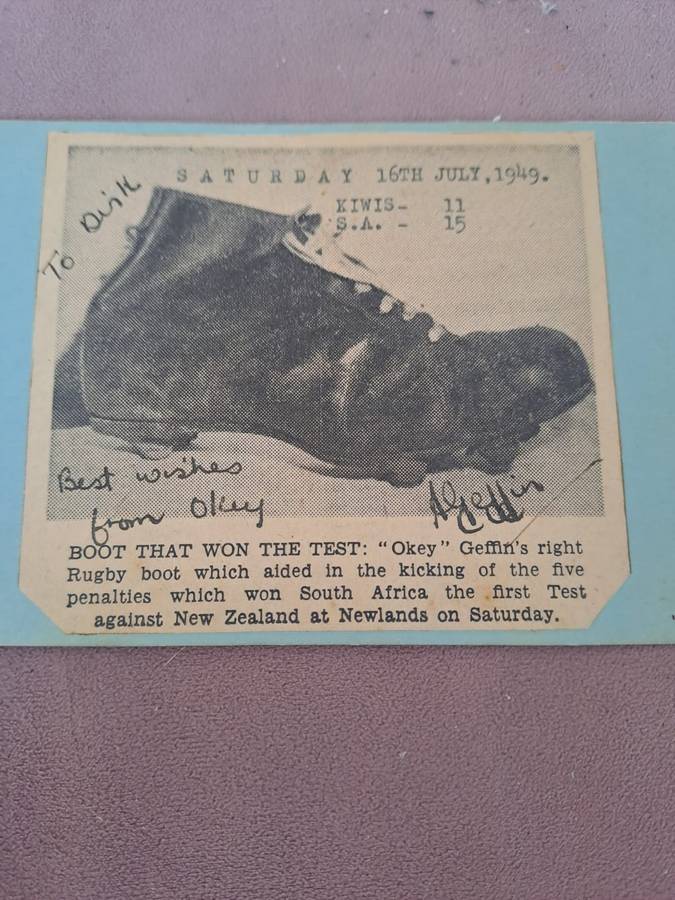 SATURDAY 16TH JULY, 1949.
KIWIS- 11
S.A. - 15
To Dick
Best wishes
from Okey
AGeffin
BOOT THAT WON THE TEST: "Okey" Geffin's right
Rugby boot which aided in the kicking of the five
penalties which won South Africa the first Test
against New Zealand at Newlands on Saturday.